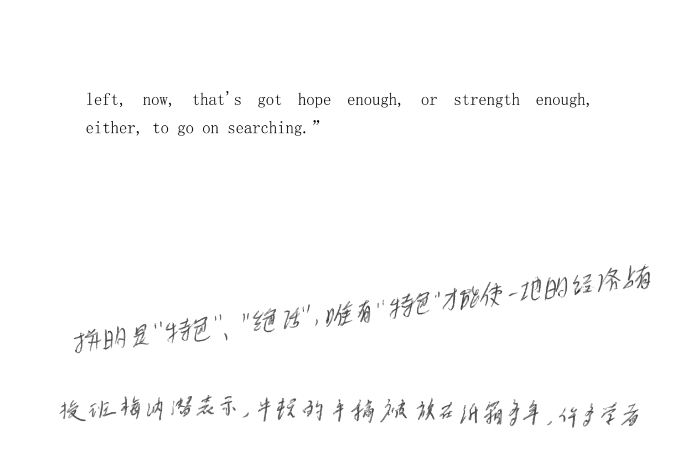 left, now, that's got hope enough, or strength enough,
either, to go on searching.”
拼明显“特色”、“绝活”，唯有“特色”才能使一地的经济占有
授班梅内潜表示，牛现的手稿被放在纸箱多年，许多学者